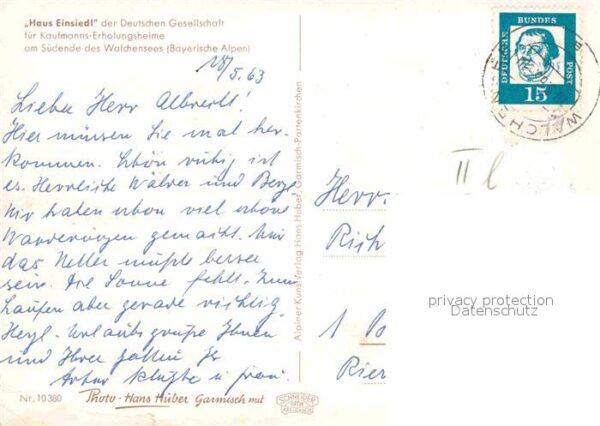 „Haus Einsiedl" der Deutschen Gesellschaft
für Kaufmanns-Erholungsheime
am Südende des Walchensees (Bayerische Alpen)
18/5.63
Lieber Herr Albrecht!
Hier müssen Sie mal her-
kommen. Schön ruhig ist
es. Herrliche Wälder und Berge.
Wir haben schon viel schöne
Wanderungen gemacht. Nur
das Wetter müßte besser
sein. Die Sonne fehlt. Zum
Laufen aber gerade richtig.
Herzl. Urlaubsgrüße Ihnen
und Ihrer Gattin Ihr
Artur u. Frau.
Nr. 10380 Photo-Hans Huber Garmisch mit
Alpiner Kunst-Verlag Hans Huber, Garmisch-Partenkirchen
DEUTSCHE BUNDES POST
15
WALCHENSEE
II
Herrn
1
privacy protection
Datenschutz